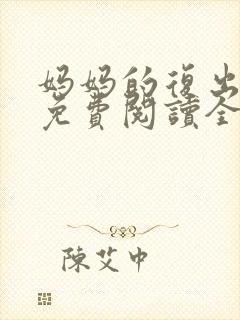 妈妈的復出
免費閱讀全
陳艾中